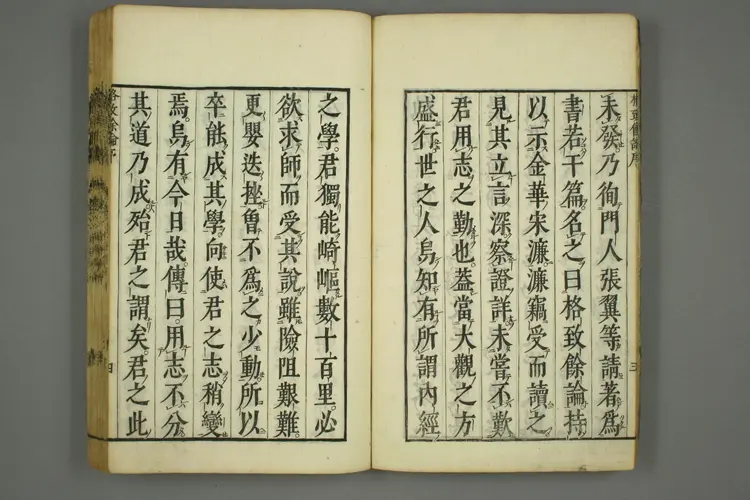 未發乃徇門人張翼等請著爲
書若干篇名之曰格致餘論持
以示金華宋濂濂竊受而讀之
見其立言深察證詳未嘗不歎
君用志之勤也。蓋當大觀之方
盛行世之人烏知有所謂内經
之學。君獨能崎嶇數十百里。必
欲求師而受其說雖險阻艱難。
更嬰迭挫曾不爲之少動所以
卒能成其學。向使君之志稍變
焉。烏有今日哉傳曰。用志不分
其道乃成殆君之謂矣。君之此
格致餘論序
三
四